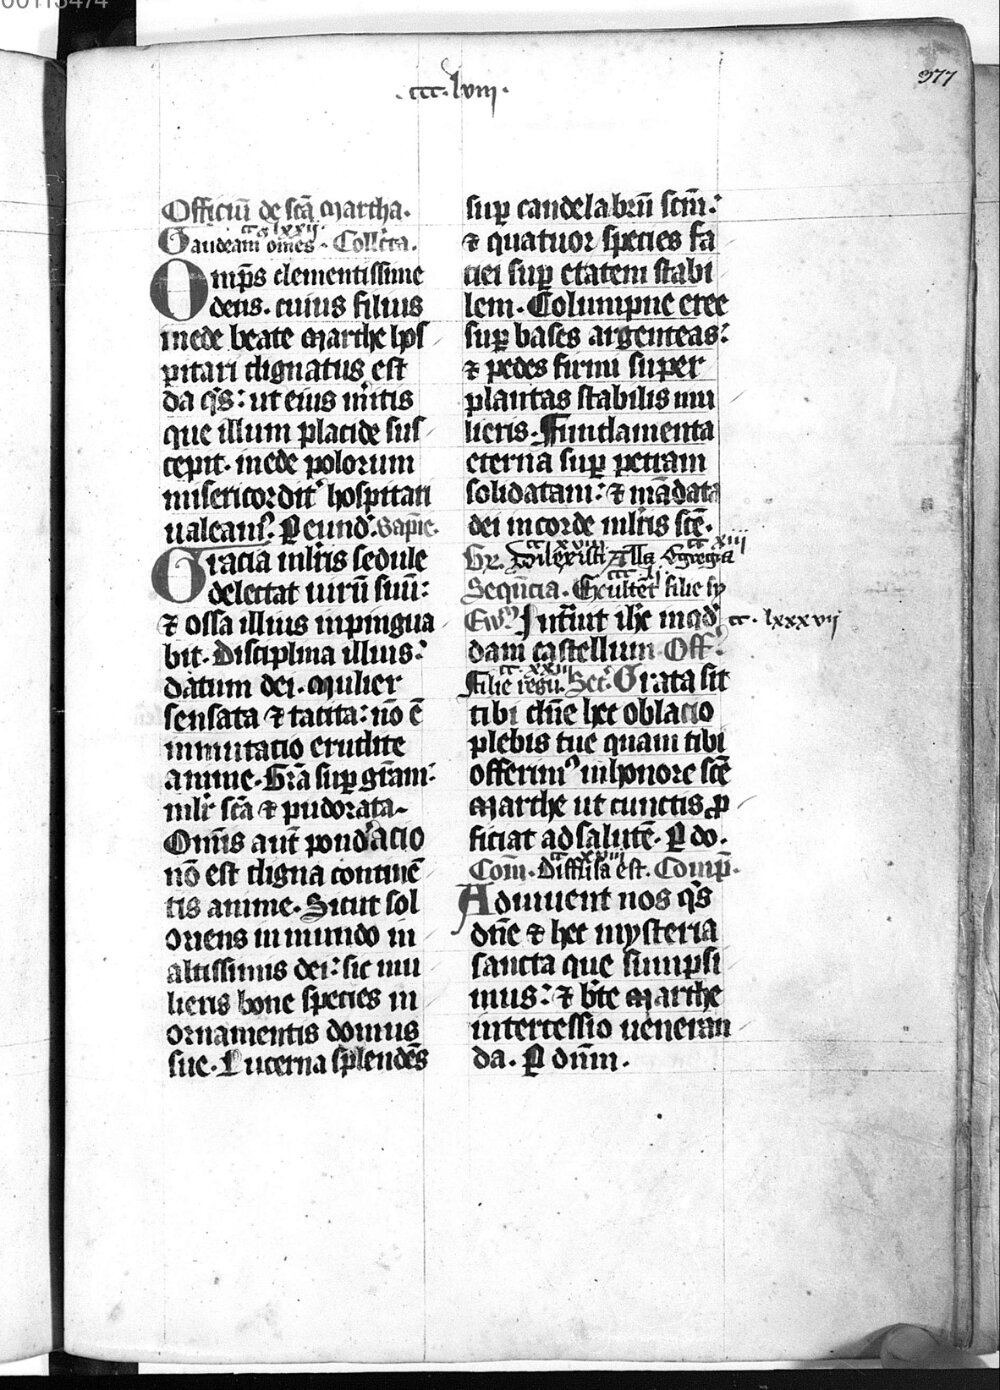 00113474
377
.ccc.lviii.
Officiū de scā martha.
cc lxxij
Gaudeam om̄es. Collc̄ta.
Omp̄s clementissime
deus. cuius filius
inede beate marthe hos
pitari dignatus est
da q̄s: ut eius mītis
que illum placide sus
cepit. inede polorum
misericordit' hospitari
ualeam'. P eund'. Sapīe.
Gracia mlīris sedule
delectat uirū suū:
⁊ ossa illius inpingua
bit. Disciplina illius:
datum dei. mulier
sensata ⁊ tacita: nō ē
inmutacio erudite
anime. Gr̄a sup gr̄am:
mlr̄ scā ⁊ pudorata.
Om̄is aut̄ pond'acio
nō est digna continē
tis anime. Sicut sol
oriens in mundo in
altissimis dei: sic mu
lieris bone species in
ornamentis domus
sue. Lucerna splendēs
sup candelabrū scm̄:
⁊ quatuor species fa
ciei sup etatem stabi
lem. Columpne eree
sup bases argenteas:
⁊ pedes firmi super
plantas stabilis mu
lieris. Fundamenta
eterna sup petram
solidatam: ⁊ mādata
dei in corde mlīris scē.
cc xviii cc xiii
Gr. Dilexisti Al̄la Egregia
ccc
Seqūcia. Exultēt filie sy
Ew̄. Intuit ih̄c in qd' cc. lxxxvij
dam castellum Off.
cc. xxiii
Filie regū. Sec̄. Grata sit
tibi dn̄e hec oblacio
plebis tue quam tibi
offerim' in honore scē
marthe ut cunctis p
ficiat ad salutē. P do.
cc xviii
Com̄. Diffusa est. Comp̄.
Adiuuent nos q̄s
dn̄e ⁊ hec mysteria
sancta que sumpsi
mus: ⁊ b̄te marthe
intercessio ueneran
da. P dnm̄.